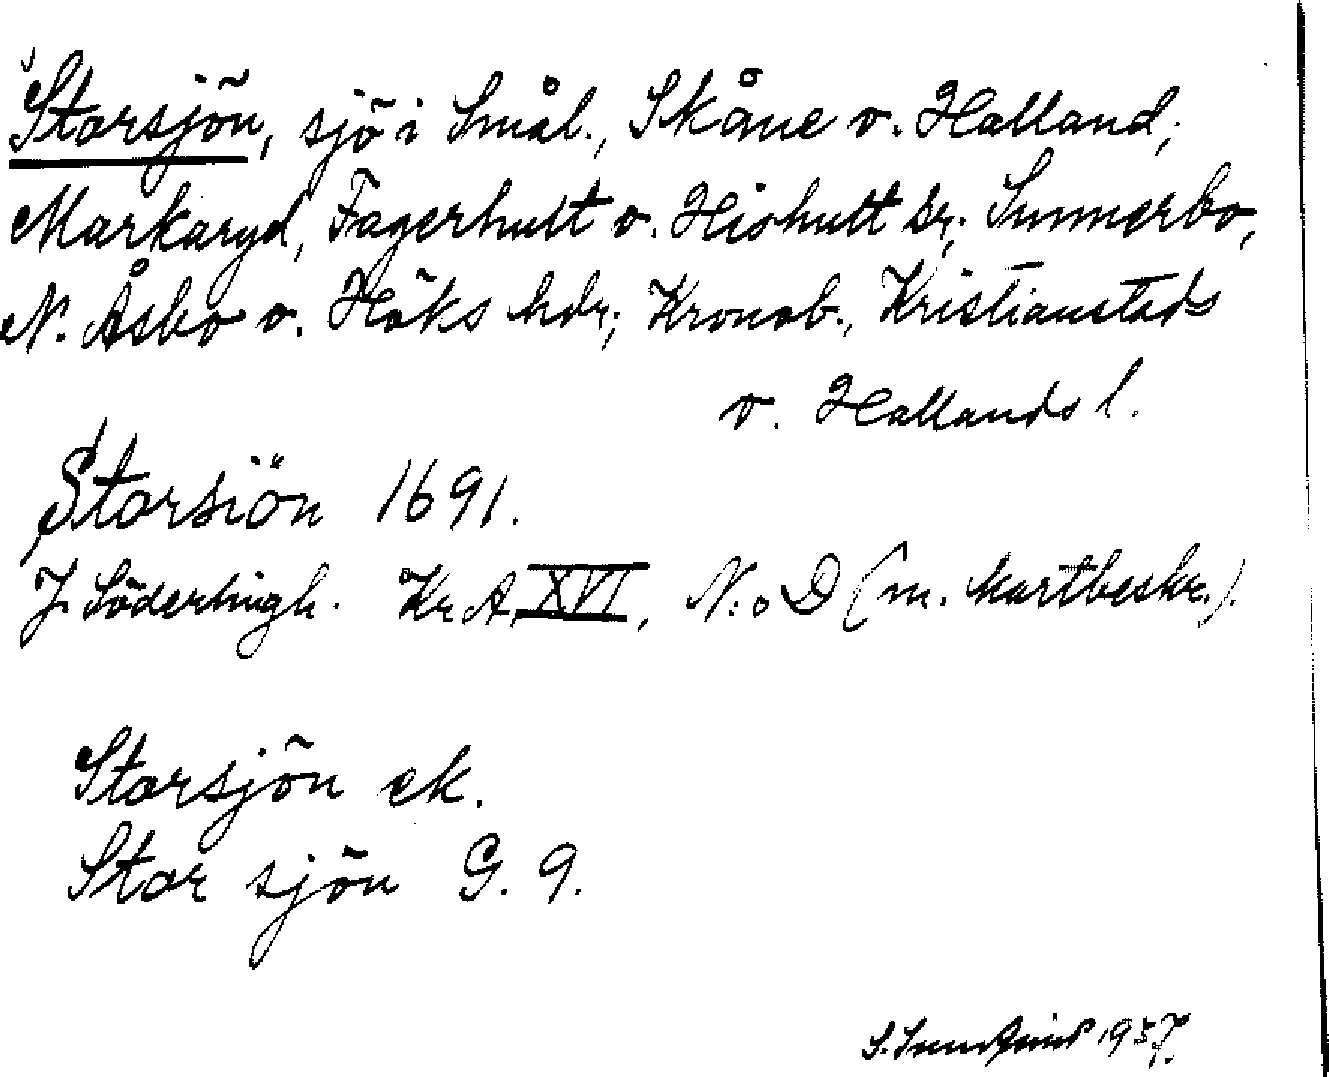 Storsjön, sjö i Smål., Skåne o. Halland;
Markaryd, Fagerhult o. Hishult sr; Sunnerbo,
N. Åsbo o. Höks hdr; Kronob., Kristianstads
o. Hallands l.
Storsiön 1691.
J. Söderlingh. Kr. A. XVI, N:o D (m. kartbeskr.).
Storsjön ek.
Stor sjön G. 9.
S. 1937.